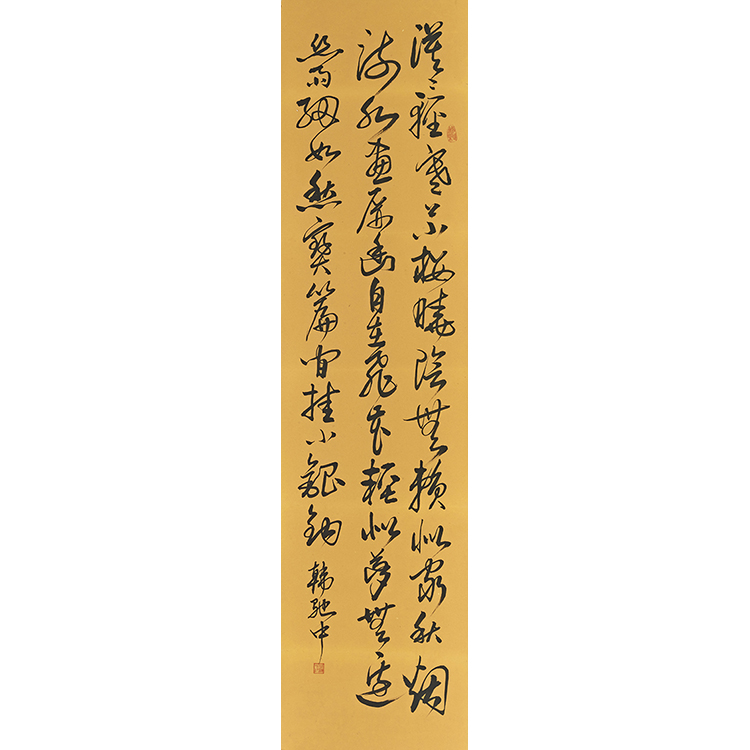 漠〻輕寒上小樓曉陰無賴似窮秋烟
流水畫屏幽自在飛花輕似夢無邊
絲雨細如愁寶簾閒挂小銀鉤
韓馳中